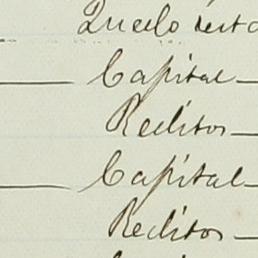 Quedo
Capital
Reditos
Capital
Reditos